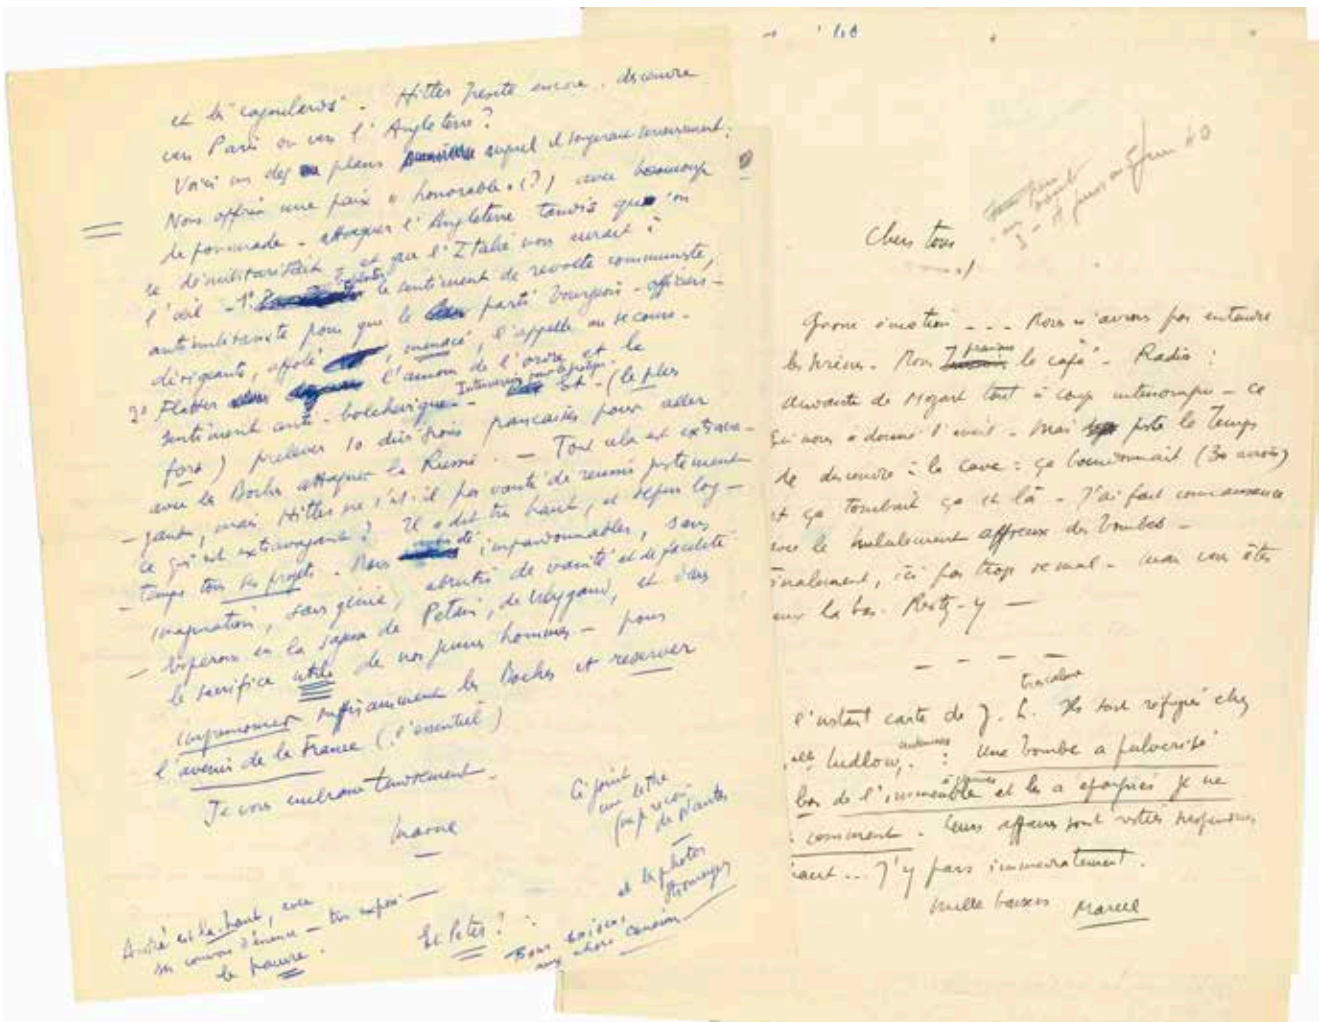 et les cagoulards - Hitler hésite encore. descendre
vers Paris ou vers l'Angleterre ?
Voici un des plans auquel il songerait sérieusement :
Nous offrir une paix « honorable » (?) avec beaucoup
de pommade - attaquer l'Angleterre tandis qu'on
se démilitariserait et que l'Italie nous aurait à
l'œil - 1° le sentiment de révolte communiste,
antimilitariste pour que le parti bourgeois - officiers -
dirigeants, affolé, menacé, l'appelle au secours -
2° Flatter l'amour de l'ordre et le
sentiment anti-bolchevique - Est - (le plus
fort) prélever 10 divisions françaises pour aller
avec les Boches attaquer la Russie. - Tout cela est extrava-
gant, mais Hitler ne s'est-il pas vanté de réussir justement
ce qui est extravagant ? Il a dit très haut, et depuis long-
temps tous ses projets. Nous impardonnables, sans
imagination, sans génie, abrutis de vanité et de facilité
- espérons en la sagesse de Pétain, de Weygand, et dans
le sacrifice utile de nos jeunes hommes - pour
impressionner suffisamment les Boches et réserver
l'avenir de la France (l'essentiel)
Je vous embrasse tendrement -
Marcel
Ci joint
une lettre
de Nantes
et les photos
André est là-haut, avec
son convoi d'essence - très exposé -
le pauvre.
Et Peter ?
Bons baisers
aux chers
40
5 juin 40
Chers tous
Grosse émotion - - - Nous n'avons pas entendu
les sirènes. Nous prenions le café - Radio :
andante de Mozart tout à coup interrompu - ce
qui nous a donné l'éveil - Mais juste le temps
de descendre à la cave : ça bourdonnait (30 avions)
et ça tombait ça et là - J'ai fait connaissance
avec le hululement affreux des bombes -
finalement, ici pas trop de mal - mais vous êtes
mieux là-bas. Restez-y -
l'instant carte de J. L. Ils sont réfugiés chez
Ludlow, : une bombe a pulvérisé
bas de l'immeuble et les a épargnés je ne
comment - Leurs affaires sont restées suspendues
haut... J'y pars immédiatement.
Mille baisers Marcel